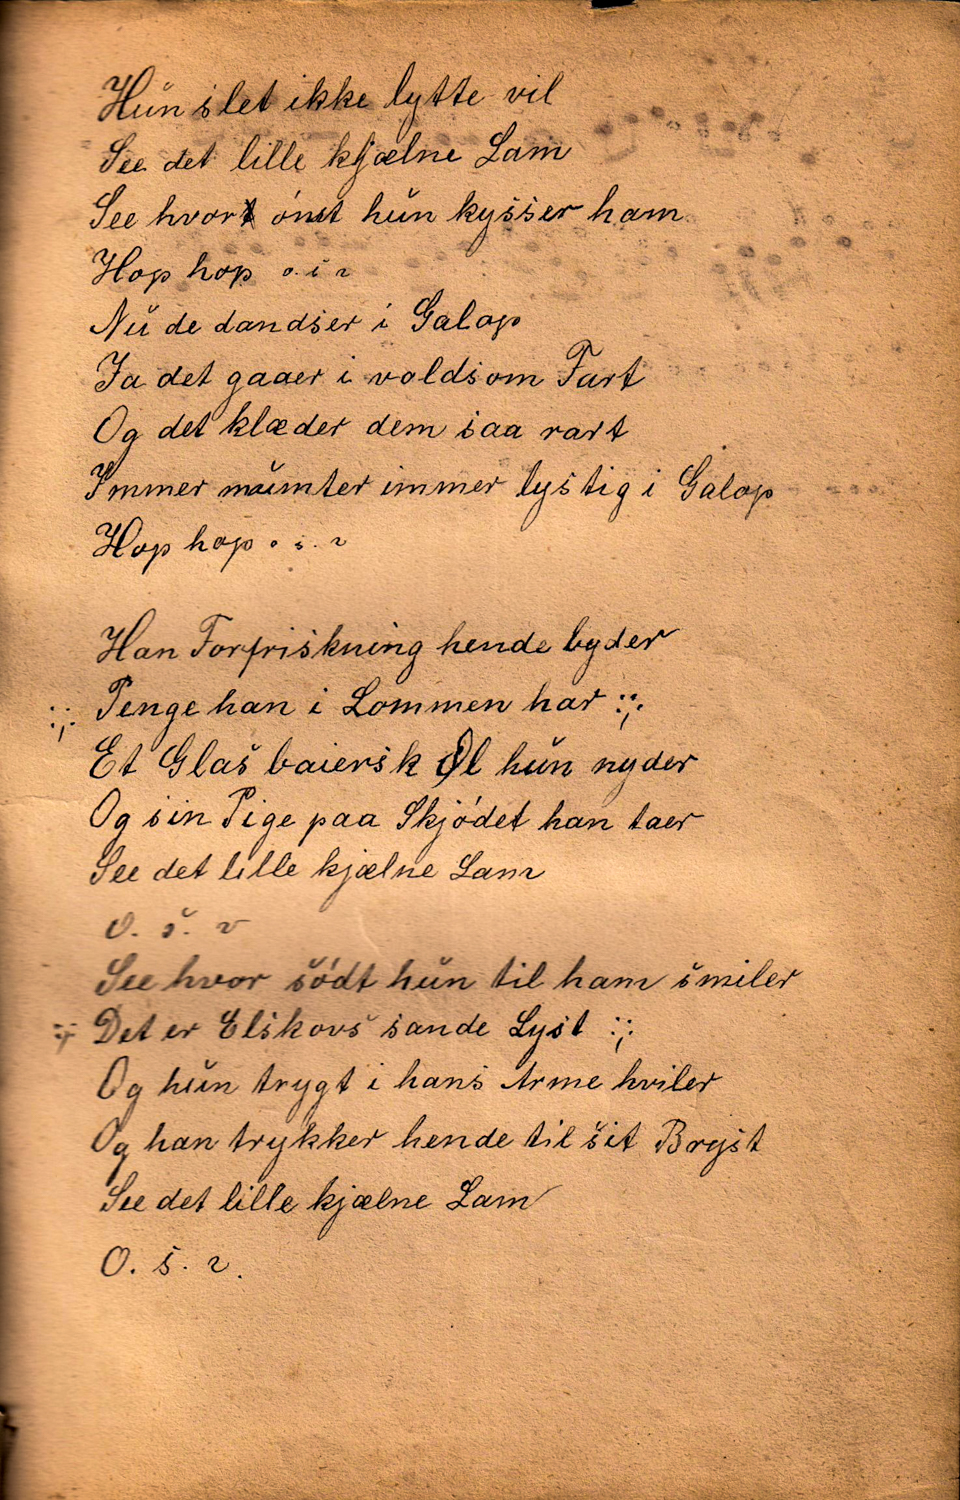 Hun slet ikke lytte vil
See det lille kjælne Lam
See hvor ómt hun kysser ham
Hop hop o. s. v
Nu de dandser i Galop
Ja det gaaer i voldsom Fart
Og det klæder dem saa rart
Immer munter immer lystig i Galop
Hop hop o. s. v
Han Forfriskning hende byder
:;: Penge han i Lommen har :;:
Et Glas baiersk Øl hun nyder
Og sin Pige paa Skjódet han taer
See det lille kjælne Lam
O. s. v
See hvor södt hun til ham smiler
:;: Det er Elskovs sande Lyst :;:
Og hun trygt i hans Arme hviler
Og han trykker hende til sit Bryst
See det lille kjælne Lam
O. s. v.